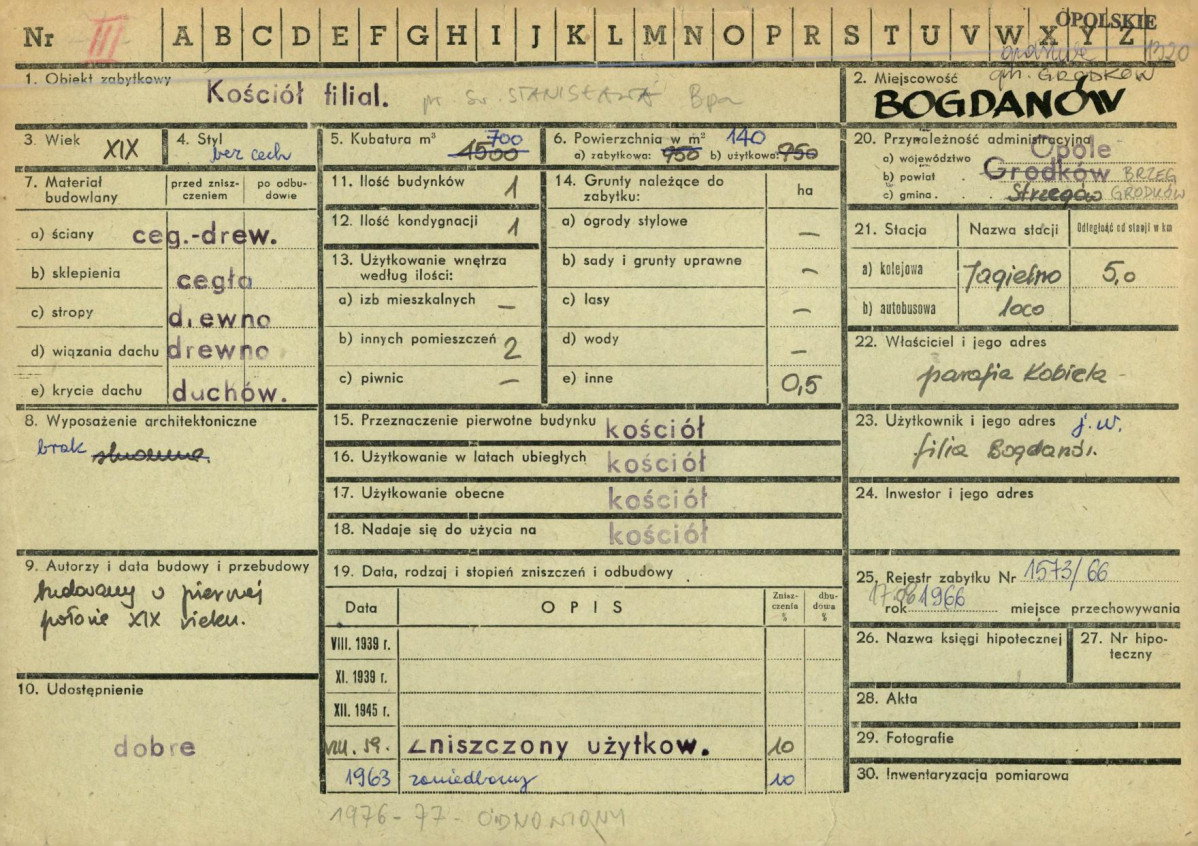 Nr III A B C D E F G H I J K L M N O P R S T U V W X Y Z OPOLSKIE
grodków 1320
1. Obiekt zabytkowy
Kościół filial. pw. Św. STANISŁAWA Bpa
2. Miejscowość gm. GRODKÓW
BOGDANÓW
3. Wiek XIX
4. Styl bez cech
5. Kubatura m³ 700
1500
6. Powierzchnia w m² 140
a) zabytkowa: 950 b) użytkowa: 950
20. Przynależność administracyjna
a) województwo Opole
b) powiat Grodków BRZEG
c) gmina Strzegów GRODKÓW
7. Materiał budowlany
przed znisz-
czeniem
po odbu-
dowie
a) ściany ceg.-drew.
b) sklepienia cegła
c) stropy drewno
d) wiązania dachu drewno
e) krycie dachu dachów.
11. Ilość budynków 1
12. Ilość kondygnacji 1
13. Użytkowanie wnętrza
według ilości:
a) izb mieszkalnych —
b) innych pomieszczeń 2
c) piwnic —
14. Grunty należące do
zabytku: ha
a) ogrody stylowe —
b) sady i grunty uprawne —
c) lasy —
d) wody —
e) inne 0,5
21. Stacja Nazwa stacji Odległość od stacji w km
a) kolejowa Jagielno 5,0
b) autobusowa loco
22. Właściciel i jego adres
parafia Kobiela -
8. Wyposażenie architektoniczne
brak
15. Przeznaczenie pierwotne budynku kościół
16. Użytkowanie w latach ubiegłych kościół
17. Użytkowanie obecne kościół
18. Nadaje się do użycia na kościół
23. Użytkownik i jego adres j.w.
filia Bogdanów.
24. Inwestor i jego adres
9. Autorzy i data budowy i przebudowy
budowany w pierwszej
połowie XIX wieku.
10. Udostępnienie
dobre
19. Data, rodzaj i stopień zniszczeń i odbudowy
Data OPIS Znisz-
czenia
%
dbu-
dowa
%
VIII. 1939 r.
XI. 1939 r.
XII. 1945 r.
VIII. 59. Zniszczony użytkow. 10
1963 zaniedbany 10
1976-77- ODNOWIONY
25. Rejestr zabytku Nr 1573/66
rok 1966 miejsce przechowywania
26. Nazwa księgi hipotecznej
27. Nr hipo-
teczny
28. Akta
29. Fotografie
30. Inwentaryzacja pomiarowa